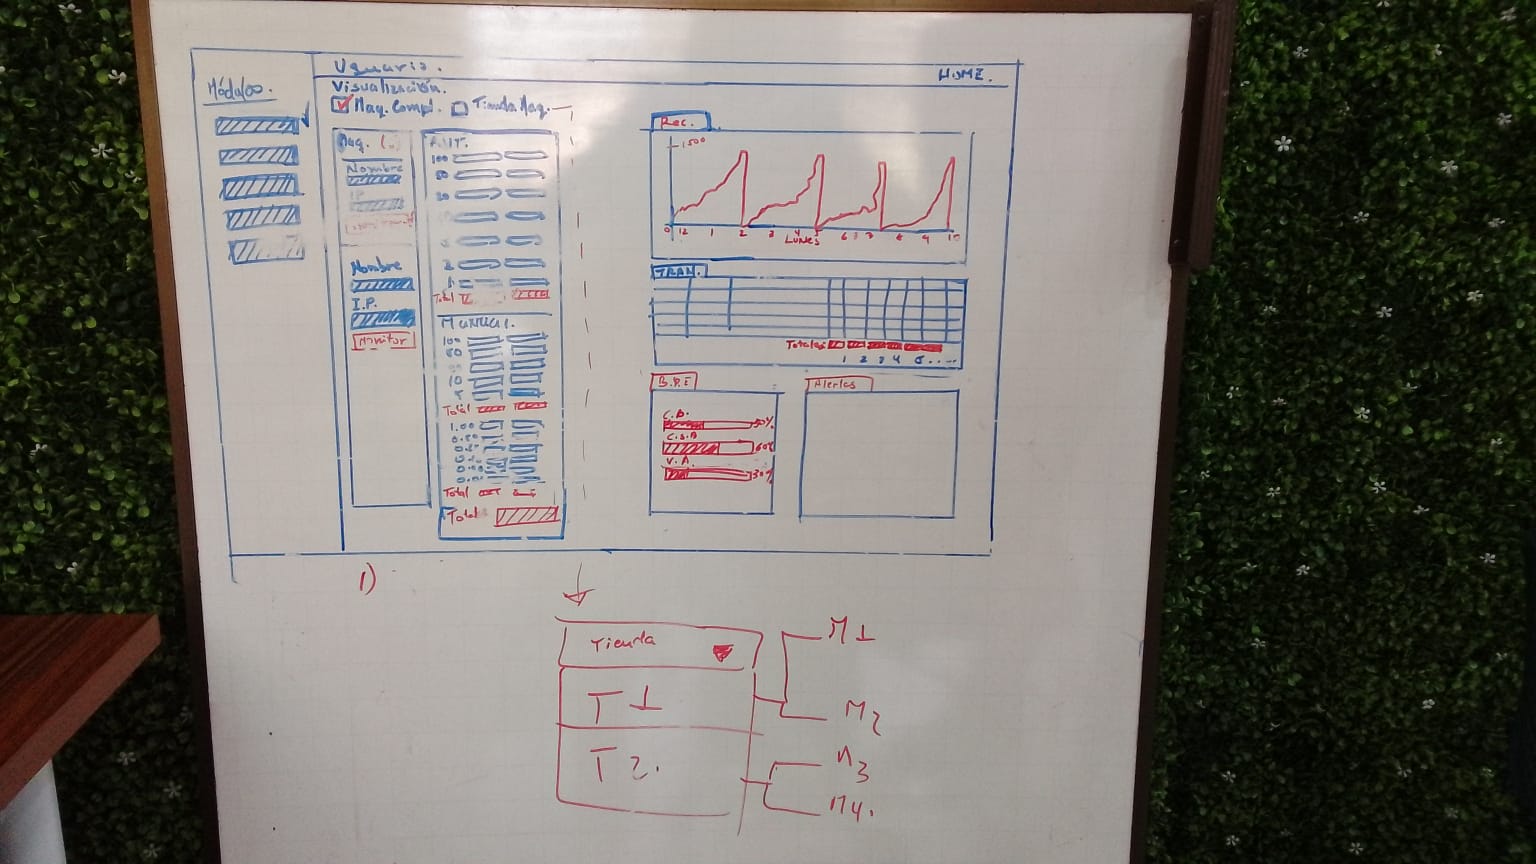 Módulos.
Usuario.
HOME.
Visualización.
Maq. Compl.
Tienda Maq.
Maq. (..)
Nombre
IP
Nombre
I.P.
Monitor
AUT.
100
50
20
2
1
Total
Manual.
100
50
10
Total
1.00
Total
Total
Rec.
1500
0 12 1 2 3 4 5 6 7 8 9 10
LUNES
TRAN.
Totales
1 2 3 4 5 . . . .
B.P.E
C.B.
50%
C.S.B
60%
V.A.
30%
Alertas
1)
Tienda
T1
T2.
M1
M2
M3
M4.